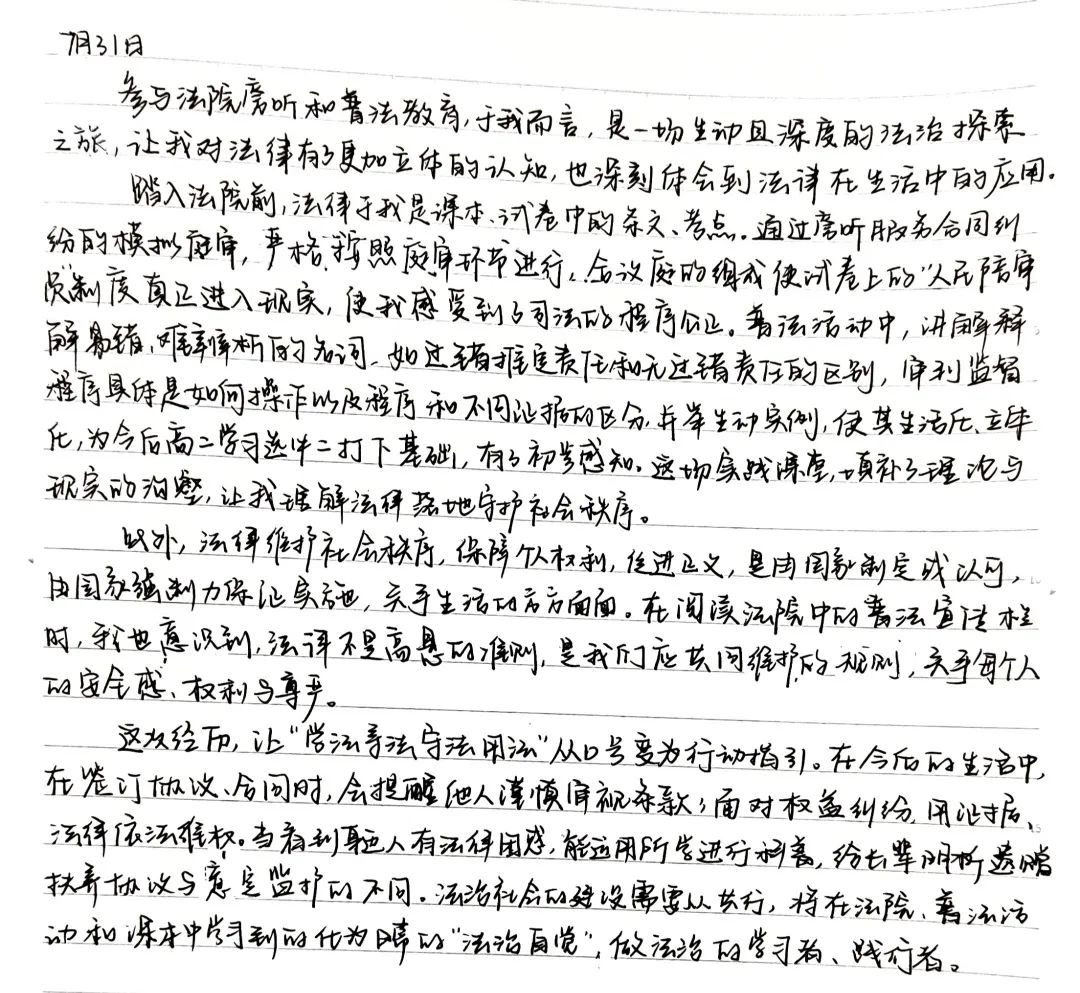 7月31日
参与法院旁听和普法教育,于我而言,是一场生动且深度的法治探索
之旅,让我对法律有了更加立体的认知,也深刻体会到法律在生活中的应用。
踏入法院前,法律于我是课本、试卷中的条文、考点。通过旁听服务合同纠
纷的模拟庭审,严格按照庭审环节进行,合议庭的组成使试卷上的“人民陪审
员”制度真正进入现实,使我感受到了司法的程序公正。普法活动中,讲解释
解易错、难辨析的名词,如过错推定责任和无过错责任的区别,审判监督
程序具体是如何操作以及程序和不同证据的区分,并举生动实例,使其生活化、立体
化,为今后高二学习选必二打下基础,有了初步感知。这场实践课堂,填补了理论与
现实的沟壑,让我理解法律落地守护社会秩序。
此外,法律维护社会秩序,保障个人权利,促进正义,是由国家制定或认可,
由国家强制力保证实施,关乎生活的方方面面。在阅读法院中的普法宣传栏
时,我也意识到,法律不是高悬的准则,是我们应共同维护的规则,关乎每个人
的安全感、权利与尊严。
这次经历,让“学法尊法守法用法”从口号变为行动指引。在今后的生活中,
在签订协议、合同时,会提醒他人谨慎审视条款;面对权益纠纷,用证据、
法律依法维权。当看到身边人有法律困惑,能运用所学进行科普,给长辈辨析遗赠
扶养协议与意定监护的不同。法治社会的建设需要从共行,将在法院、普法活
动和课本中学习到的化为日常的“法治自觉”,做法治的学习者、践行者。